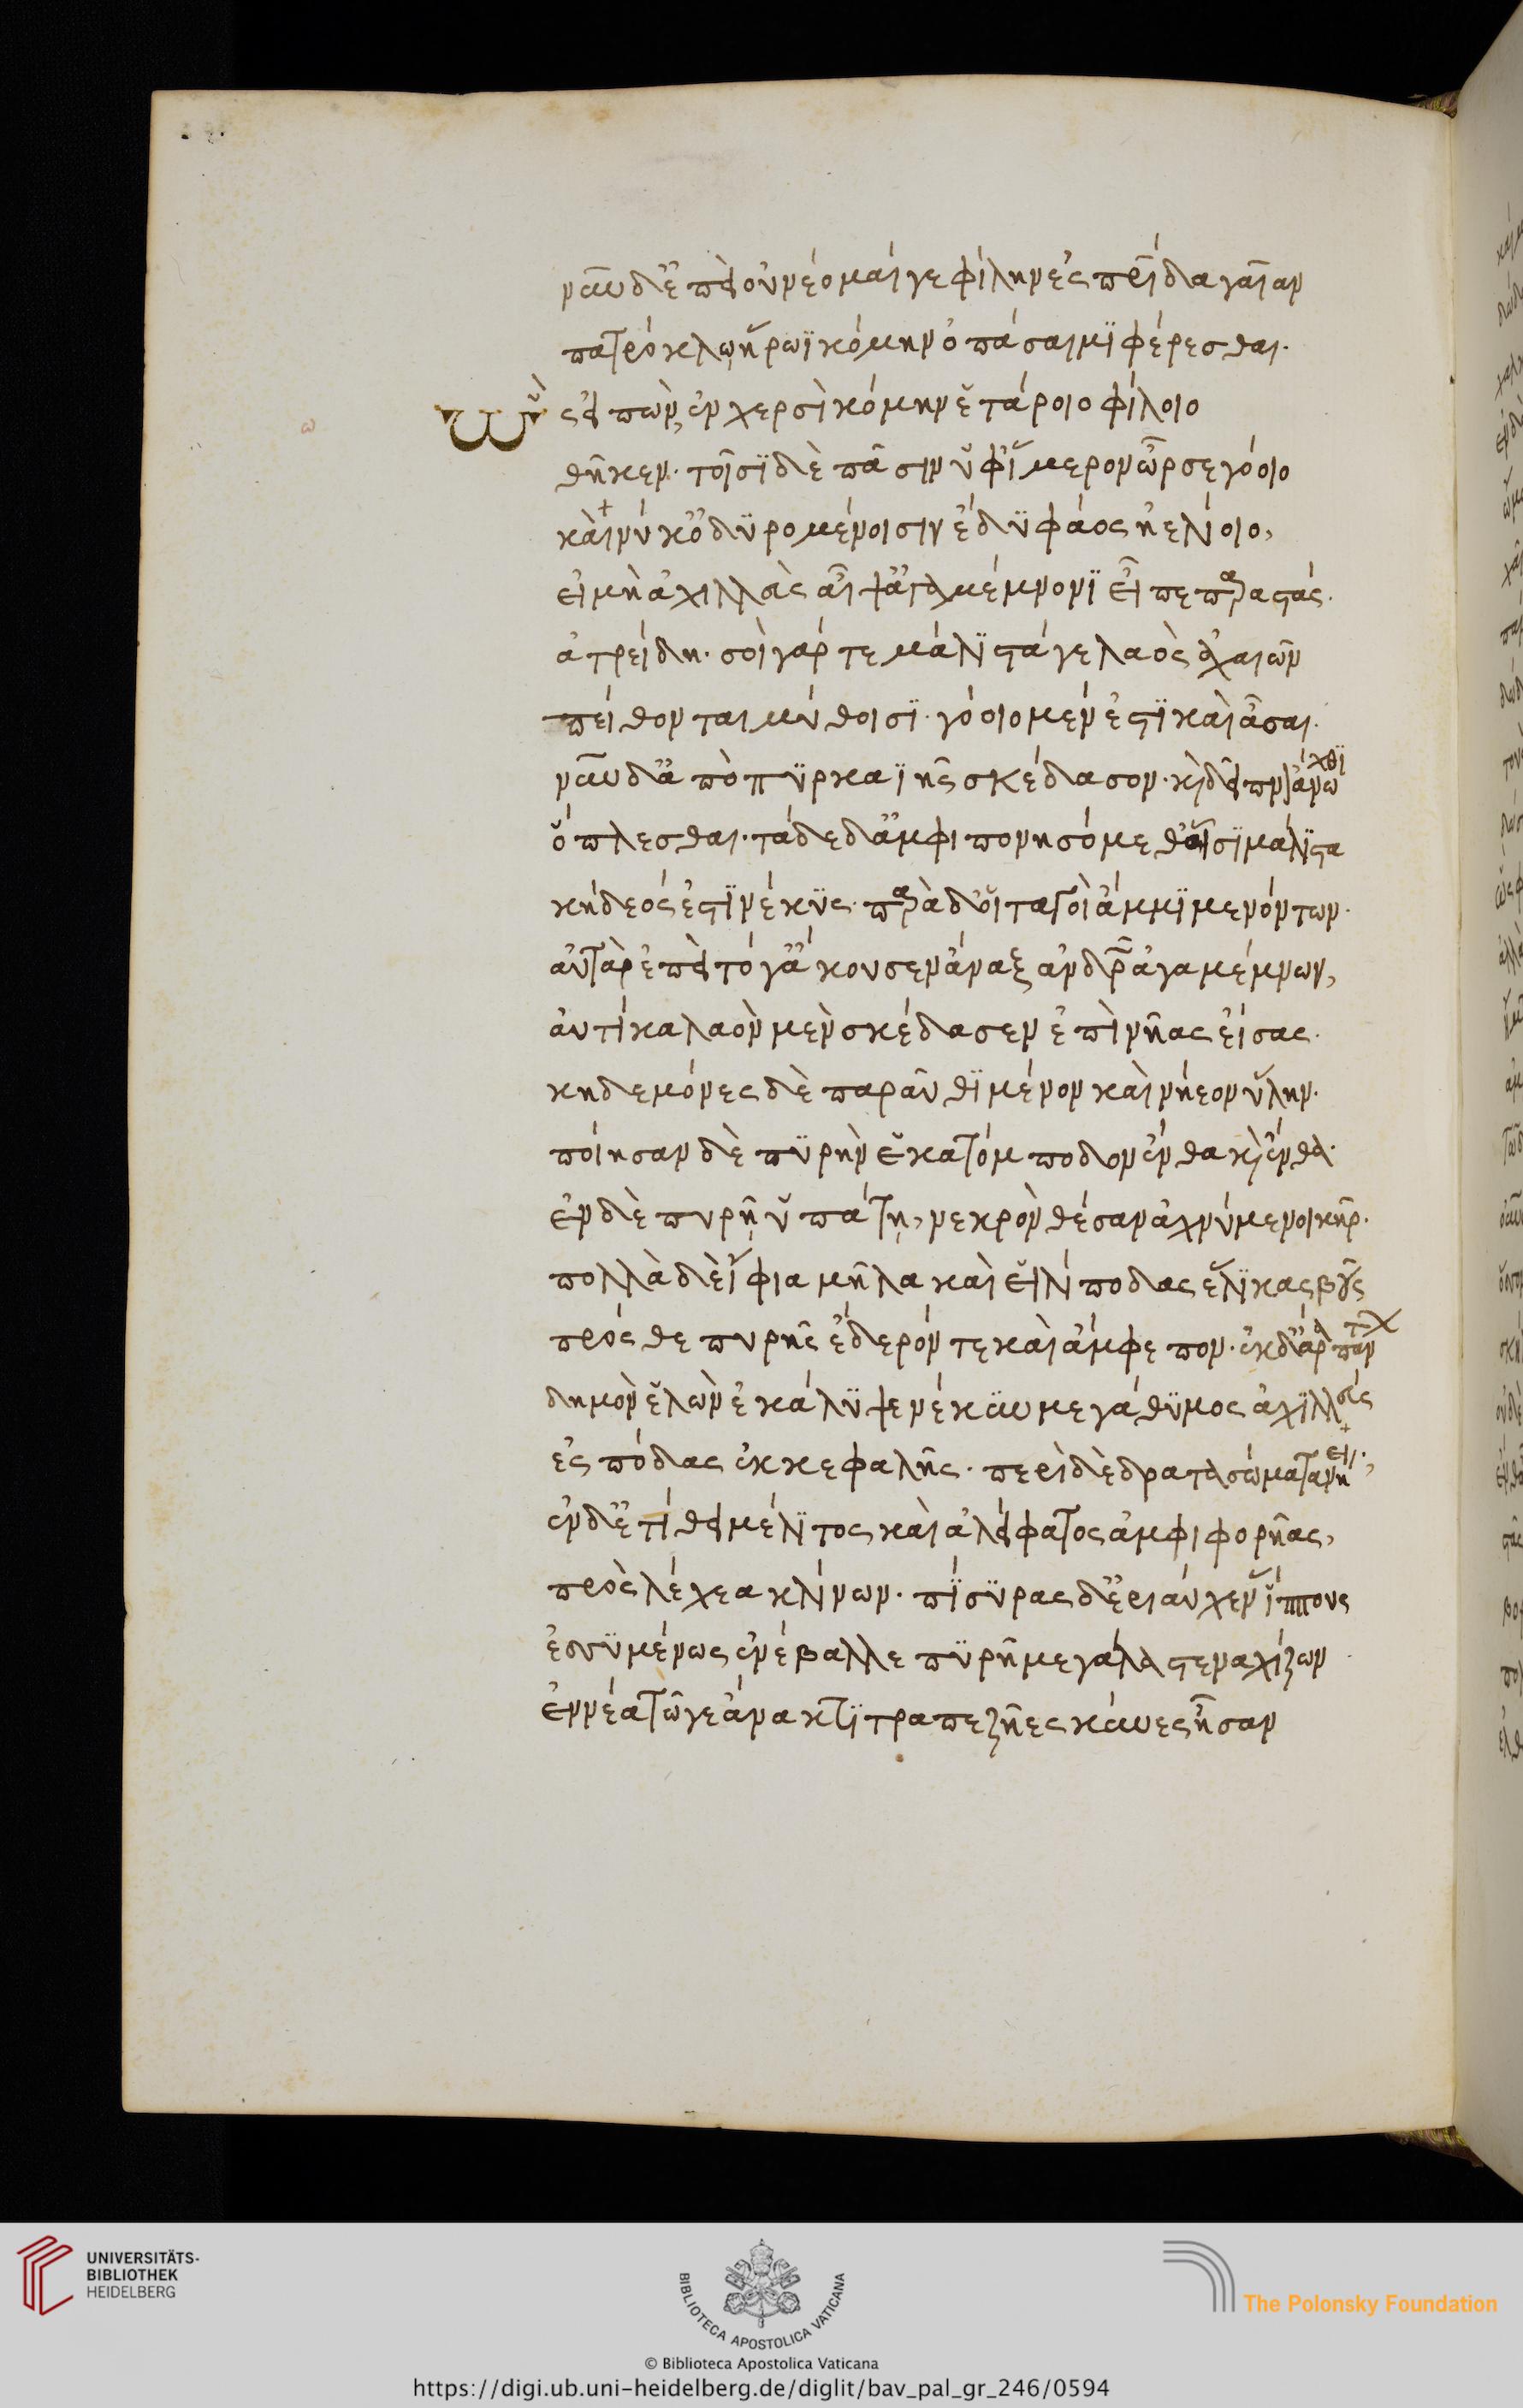 νῦν δ' ἐπεὶ οὐ νέομαί γε φίλην ἐς πατρίδα γαῖαν
πατρόκλῳ ἥρωϊ κόμην ὀπάσαιμι φέρεσθαι.
Ὣς εἰπὼν, ἐν χερσὶ κόμην ἑτάροιο φίλοιο
θῆκεν. τοῖσι δὲ πᾶσιν ὑφ' ἵμερον ὦρσε γόοιο
καί νύ κ' ὀδυρομένοισιν ἔδυ φάος ἠελίοιο,
εἰ μὴ ἀχιλλεὺς αἶψ' ἀγαμέμνονι εἶπε παραστάς.
ἀτρείδη. σοὶ γάρ τε μάλιστά γε λαὸς ἀχαιῶν
πείθονται μύθοισι. γόοιο μὲν ἔστι καὶ ἆσαι.
νῦν δ' ἀπὸ πυρκαϊῆς σκέδασον. καὶ δεῖπνον ἄνωχθι
ὅπλεσθαι. τάδε δ' ἀμφιπονησόμεθ' οἷσι μάλιστα
κήδεός ἐστι νέκυς. παρὰ δ' οἵ τ' ἀγοὶ ἄμμι μενόντων.
αὐτὰρ ἐπεὶ τό γ' ἄκουσεν ἄναξ ἀνδρῶν ἀγαμέμνων,
αὐτίκα λαὸν μὲν σκέδασεν ἐπὶ νῆας ἐίσας.
κηδεμόνες δὲ παρ' αὖθι μένον καὶ νήεον ὕλην.
ποίησαν δὲ πυρὴν ἑκατόμποδον ἔνθα καὶ ἔνθα.
ἐν δὲ πυρῇ ὑπάτῃ, νεκρὸν θέσαν ἀχνύμενοι κῆρ.
πολλὰ δὲ ἴφια μῆλα καὶ εἰλίποδας ἕλικας βοῦς
πρόσθε πυρῆς ἔδερόν τε καὶ ἄμφεπον. ἐκ δ' ἄρα πάντων
δημὸν ἑλὼν ἐκάλυψε νέκυν μεγάθυμος ἀχιλλεὺς
ἐς πόδας ἐκ κεφαλῆς. περὶ δὲ δρατὰ σώματα νήει.
ἐν δ' ἐτίθει μέλιτος καὶ ἀλείφατος ἀμφιφορῆας,
πρὸς λέχεα κλίνων. πίσυρας δ' ἐριαύχενας ἵππους
ἐσσυμένως ἐνέβαλλε πυρῇ μεγάλα στεναχίζων
ἐννέα τῷ γε ἄνακτι τραπεζῆες κύνες ἦσαν
UNIVERSITÄTS-
BIBLIOTHEK
HEIDELBERG
BIBLIOTECA APOSTOLICA VATICANA
The Polonsky Foundation
© Biblioteca Apostolica Vaticana
https://digi.ub.uni-heidelberg.de/diglit/bav_pal_gr_246/0594